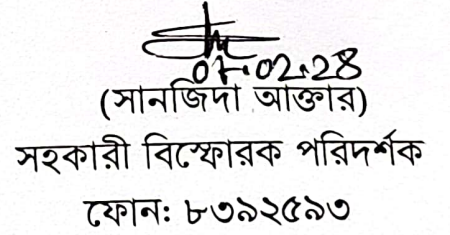 07.02.28
(সানজিদা আক্তার)
সহকারী বিস্ফোরক পরিদর্শক
ফোন: ৮৩৯২৫৯৩